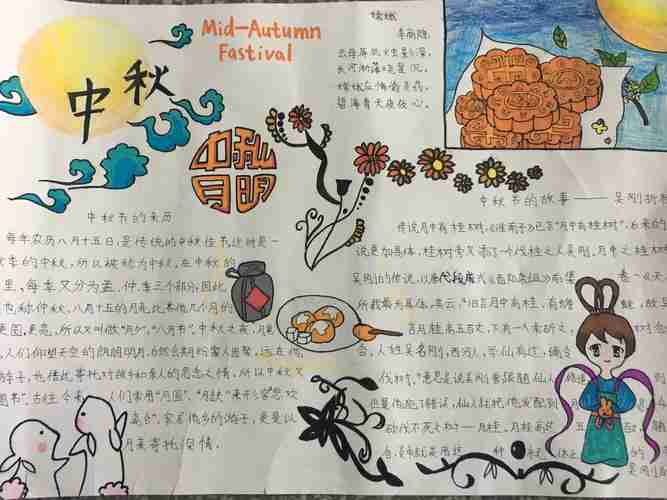 中秋
Mid-Autumn
Fastival
嫦娥
李商隐
云母屏风烛影深,
长河渐落晓星沉。
嫦娥应悔偷灵药,
碧海青天夜夜心。
中秋
月明
中秋节的来历
每年农历八月十五日,是传统的中秋佳节这时是一
秋季的中秋,所以被称为中秋。在中秋的
里,每季又分为孟、仲、季三个部分,因此
也称仲秋。八月十五的月亮比其他几个月的
更圆,更亮,所以又叫做“月夕”,“八月节”。中秋之夜,月
人们仰望天空的
游子,也借此寄托对故乡和亲人的思念之情,所以中秋又
古往今来 人们常用“月圆”、“月缺”来形容“悲欢
离合”,客居他乡的游子,更是以
月来寄托深情。
中秋节的故事——吴刚折桂
传说月中有桂树,《淮南子》已言“月中有桂树”,后来的
说更加具体,桂树旁又添了一个伐桂之人吴刚。月中之桂树
吴刚的传说,以唐代段成式《酉阳杂俎》前集 卷一《天
所载最为具体,其云:“旧言月中有桂,有蟾
言月桂高五百丈,下有一人常斫之,
合。人姓吴名刚,西河人,学仙有过,谪令
伐树。”意思是说吴刚曾跟随仙人
但是他犯了错误,仙人
砍伐不死之树——月桂。月桂高达